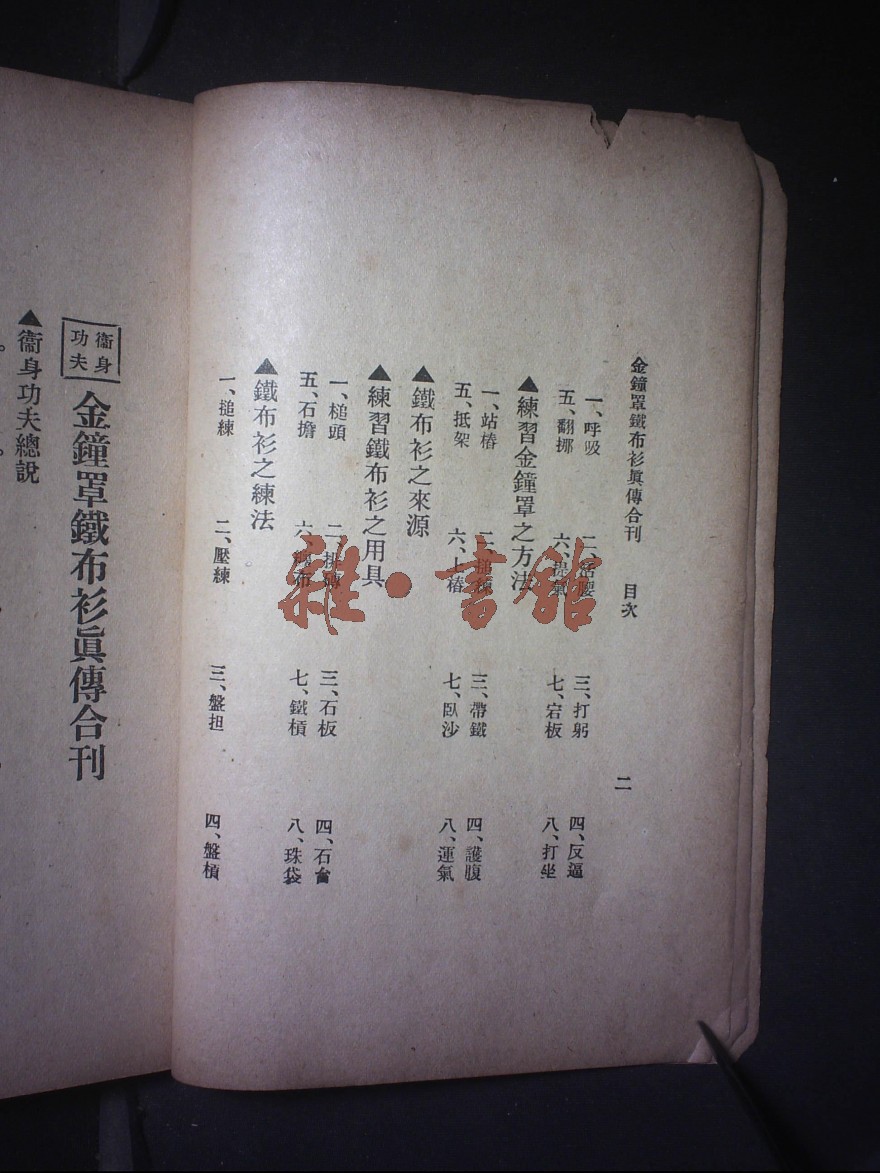 金鐘罩鐵布衫眞傳合刊 目次 二
一、呼吸 二、活腰 三、打躬 四、反逼
五、翻挪 六、提氣 七、宕板 八、打坐
▲練習金鐘罩之方法
一、站樁 二、搥練 三、帶鐵 四、護腹
五、抵架 六、上樁 七、臥沙 八、運氣
▲鐵布衫之來源
▲練習鐵布衫之用具
一、槌頭 二、排磚 三、石板 四、石台
五、石擔 六、 布 七、鐵槓 八、珠袋
▲鐵布衫之練法
一、搥練 二、壓練 三、盤担 四、盤槓
衞身功夫 金鐘罩鐵布衫眞傳合刊
▲衞身功夫總說
雜·書館